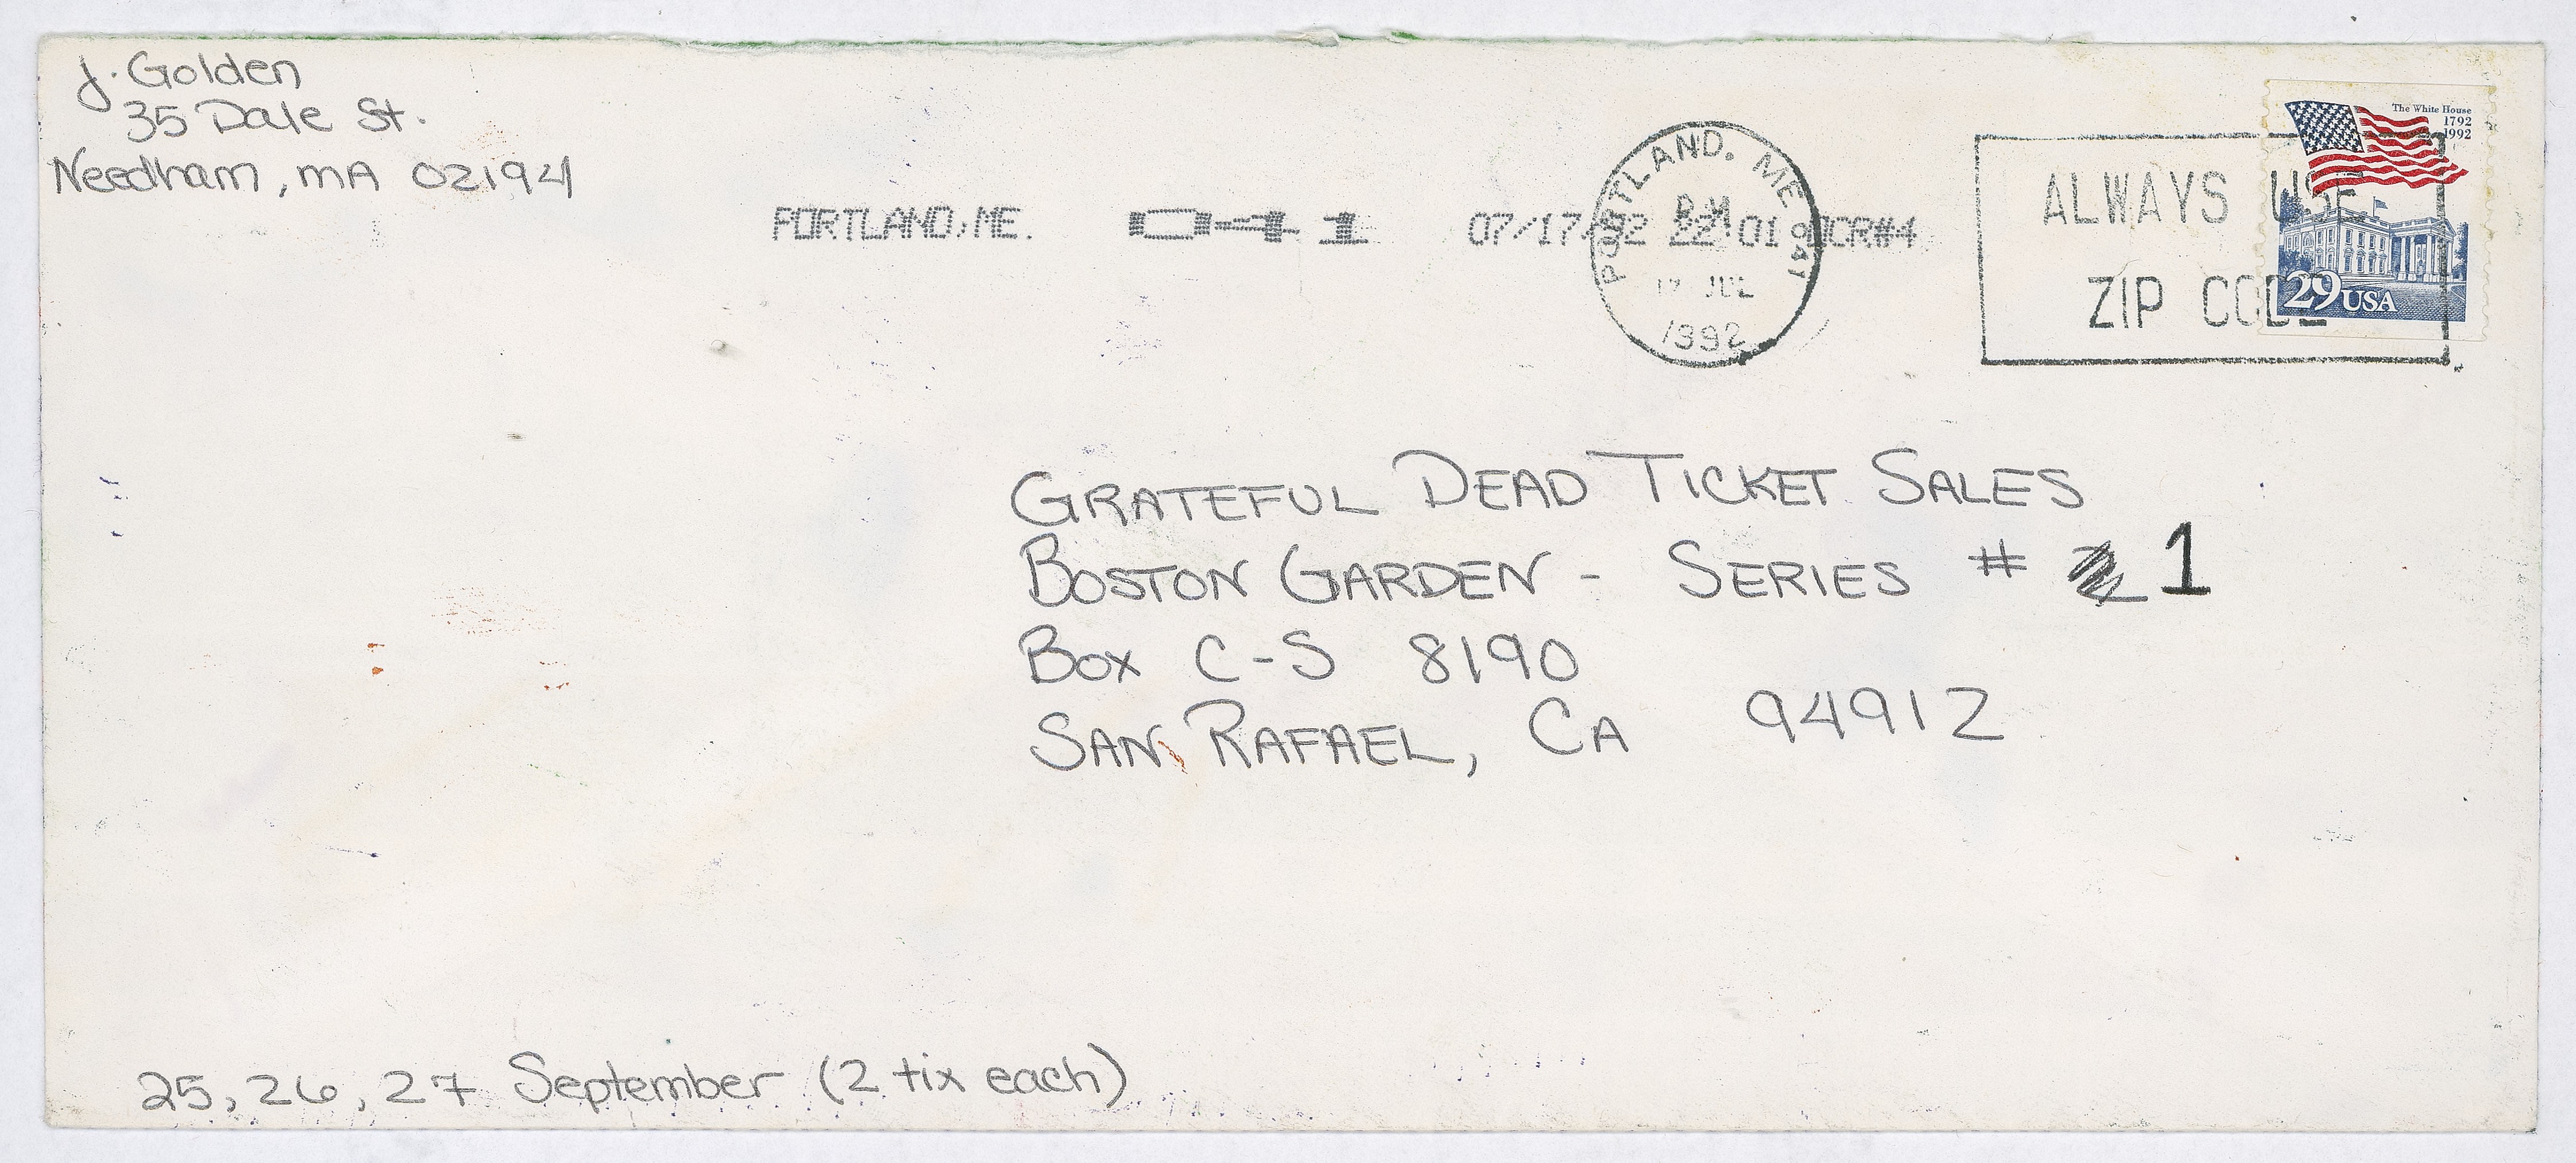 J. Golden
35 Dale St.
Needham, MA 02194
The White House
1792
1992
PORTLAND, ME 041
PM
17 JUL
1992
ALWAYS USE
ZIP CODE
29 USA
PORTLAND, ME. 041 07/17/92 22:01 OCR#4
GRATEFUL DEAD TICKET SALES
BOSTON GARDEN - SERIES # 1
BOX C-S 8190
SAN RAFAEL, CA 94912
25, 26, 27 September (2 tix each)